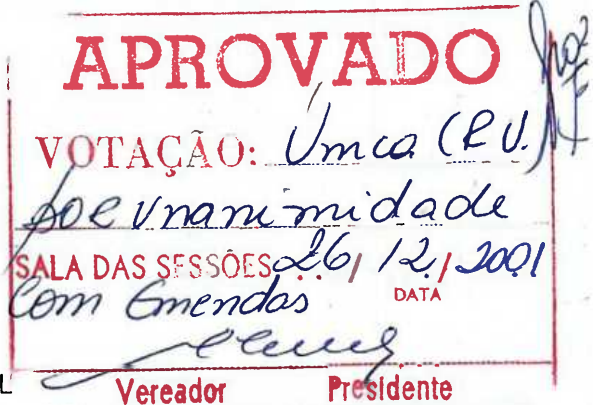 APROVADO
VOTAÇÃO: Única (R.U.
por unanimidade
SALA DAS SESSÕES 26/12/2001
Com Emendas DATA
Vereador Presidente